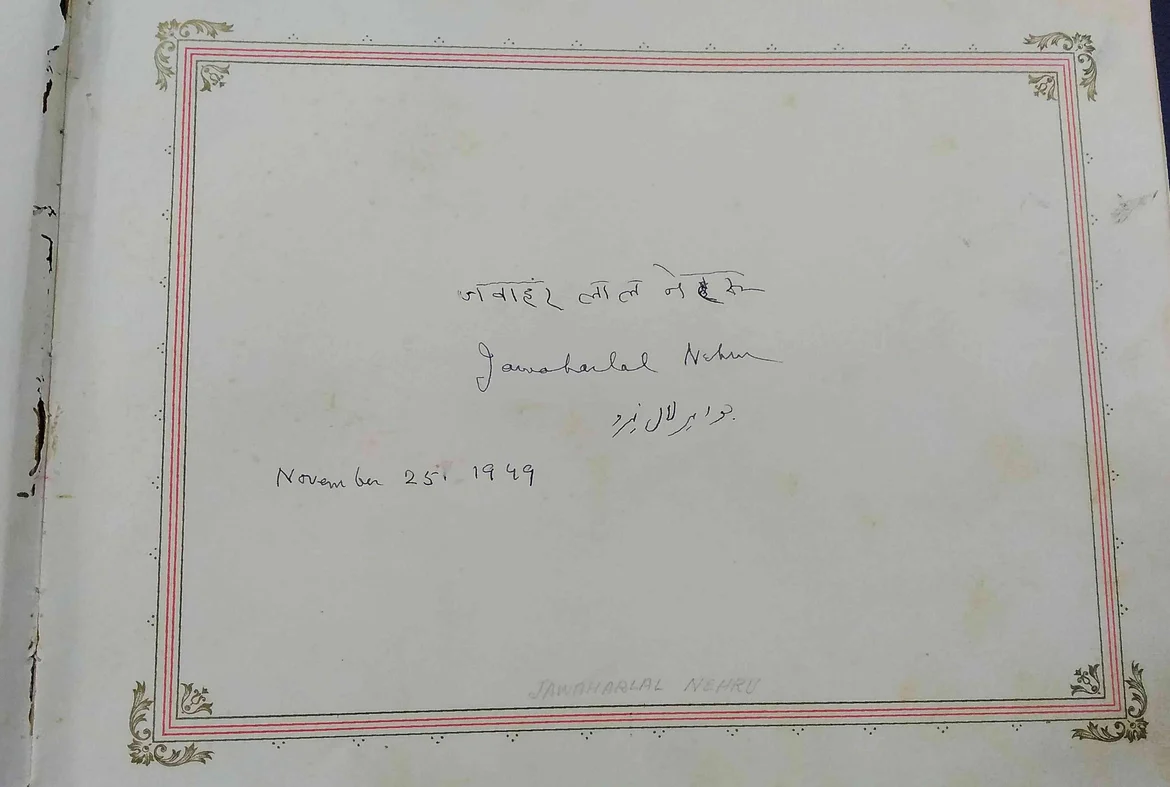 जवाहर लाल नेहरू
Jawaharlal Nehru
جواہر لال نہرو
November 25. 1949
JAWAHARLAL NEHRU